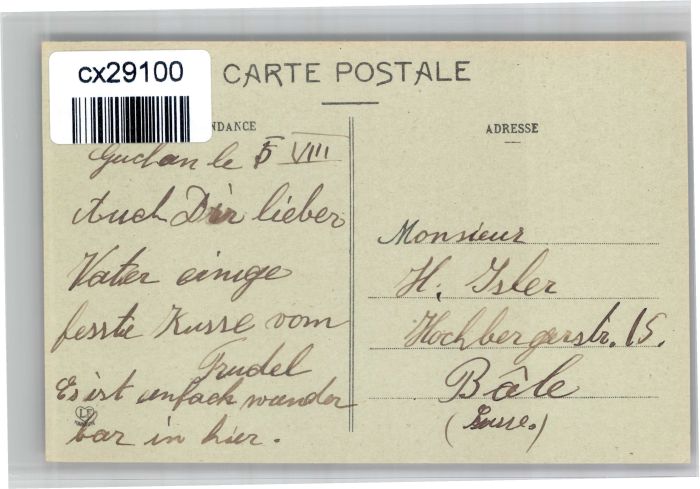 cx29100
CARTE POSTALE
NDANCE
ADRESSE
le 5 VIII
Auch Dir lieber
Vater einige
feste Kusse vom
Trudel
Es ist einfach wunder
bar in hier.
Monsieur
H. Isler
Hochbergerstr. 15.
Bâle
(Suisse.)